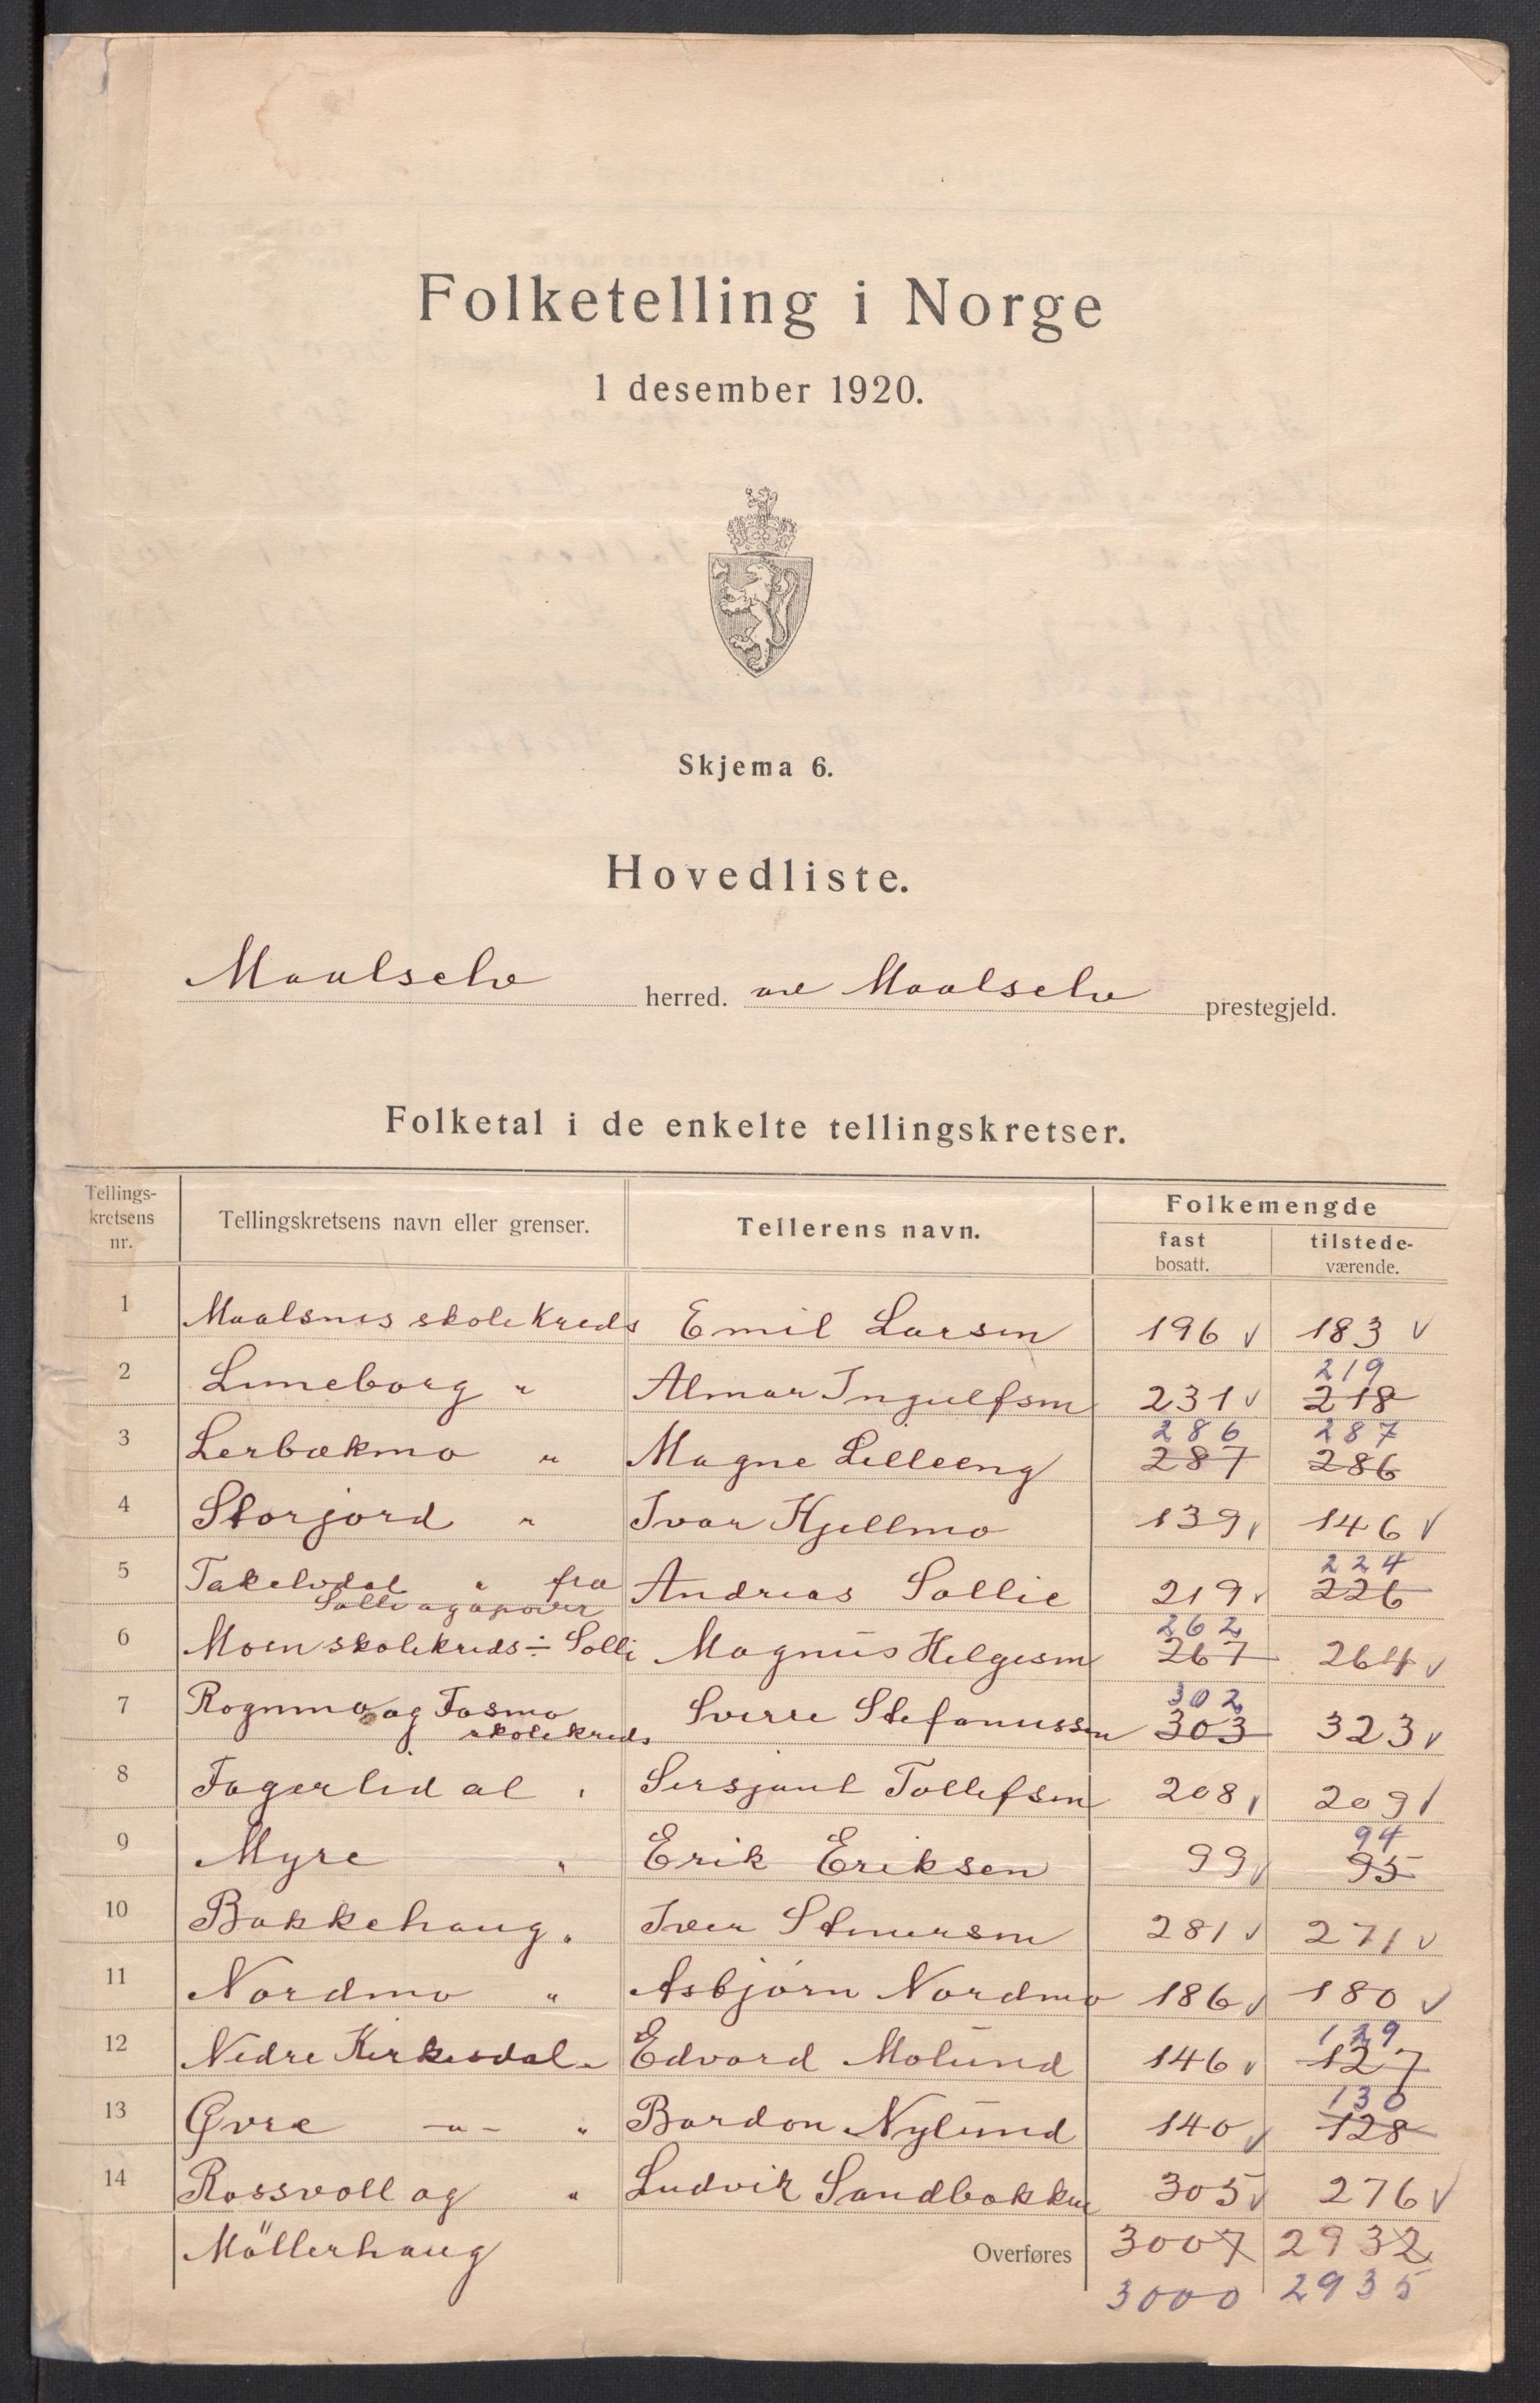 Folketelling i Norge
1 desember 1920.
Skjema 6.
Hovedliste.
Maalselv herred. Maalselv prestegjeld.
Folketal i de enkelte tellingskretser.
Tellings-
kretsens
nr.
Tellingskretsens navn eller grenser.
Tellerens navn.
Folkemengde
fast
bosatt.
tilstede-
værende.
1 Maalsnes skolekreds Emil Larsen 196 √ 183 √
219
2 Luneborg " Almar Ingulfsen 231 √ 218
286 287
3 Lerbækmo " Magne Lilleeng 287 286
4 Storjord " Ivar Hjellmo 139 √ 146 √
224
5 Takelvdal " fra Andreas Sollie 219 √ 226
Solli og opover
262
6 Moen skolekreds ÷ Solli Magnus Helgesen 267 264 √
302
7 Rognmo og Fosmo Sverre Stefanussen 303 323 √
skolekreds
8 Fagerlidal " Sersjant Tollefsen 208 √ 209 √
94
9 Myre " Erik Eriksen 99 √ 95
10 Bakkehaug " Iver 281 √ 271 √
11 Nordmo " Asbjørn Nordmo 186 √ 180 √
129
12 Nedre Kirkesdal " Edvard Molund 146 √ 127
130
13 Øvre -"- " Bardon Nylund 140 √ 128
14 Rossvoll og " Ludvik Sandbakken 305 √ 276 √
Möllerhaug Overføres 3007 2932
3000 2935